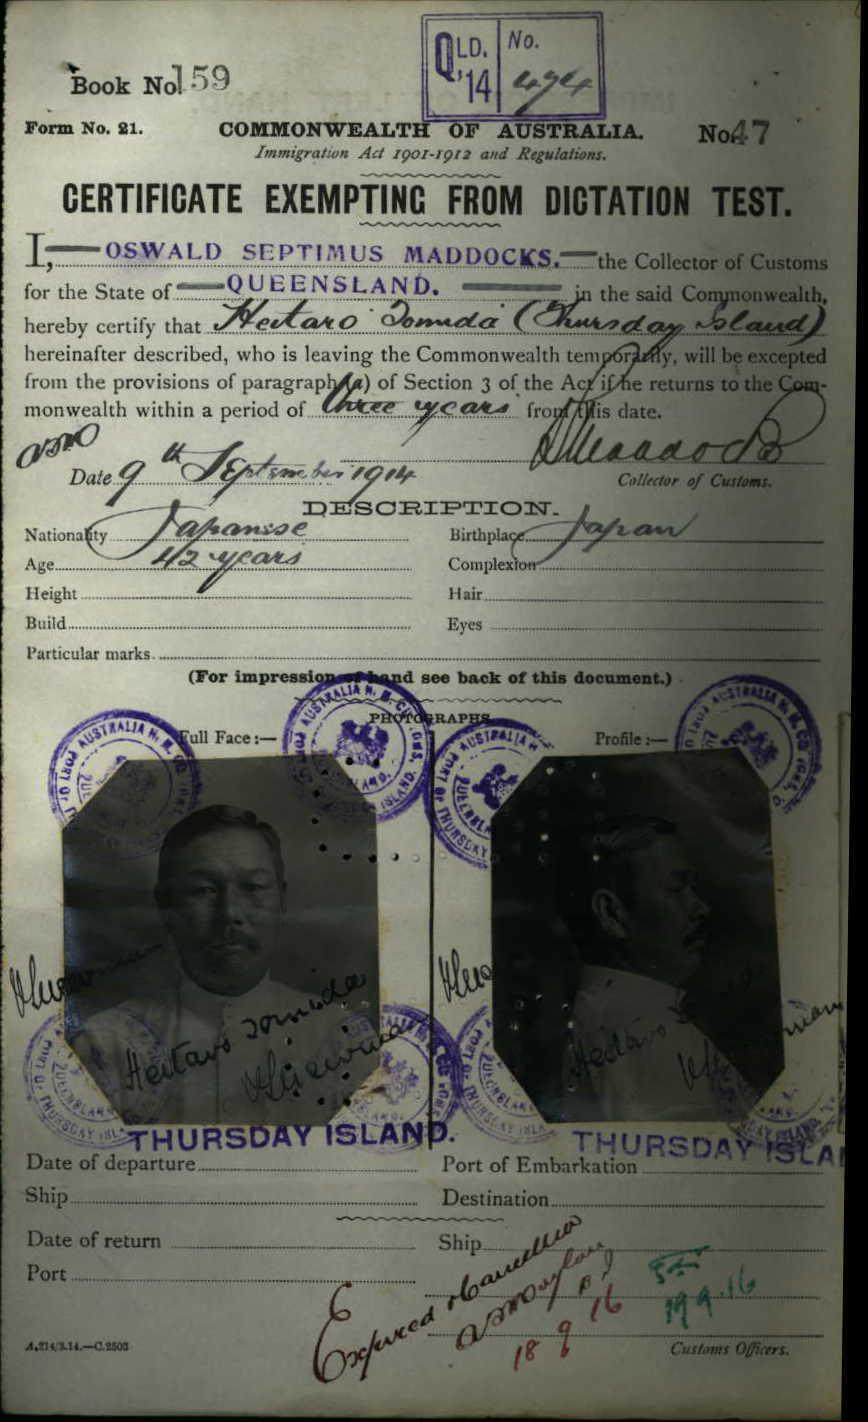 QLD. '14 No. 494
Book No 159
Form No. 21. COMMONWEALTH OF AUSTRALIA. No. 47
Immigration Act 1901-1912 and Regulations.
CERTIFICATE EXEMPTING FROM DICTATION TEST.
I, OSWALD SEPTIMUS MADDOCKS. the Collector of Customs
for the State of QUEENSLAND. in the said Commonwealth,
hereby certify that Heitaro Tomida (Thursday Island)
hereinafter described, who is leaving the Commonwealth temporarily, will be excepted
from the provisions of paragraph (a) of Section 3 of the Act if he returns to the Com-
monwealth within a period of three years from this date.
Date 9th September 1914 Collector of Customs.
DESCRIPTION.
Nationality Japanese Birthplace Japan
Age 42 years Complexion
Height Hair
Build Eyes
Particular marks.
(For impression of hand see back of this document.)
PHOTOGRAPHS.
Full Face :— Profile :—
Heitaro Tomida
Heitaro
THURSDAY ISLAND. THURSDAY ISLA
Date of departure Port of Embarkation
Ship Destination
Date of return Ship
Port
Expired Cancelled
18 9 16 19 9.16
A.214/3.14.—C.2503 Customs Officers.